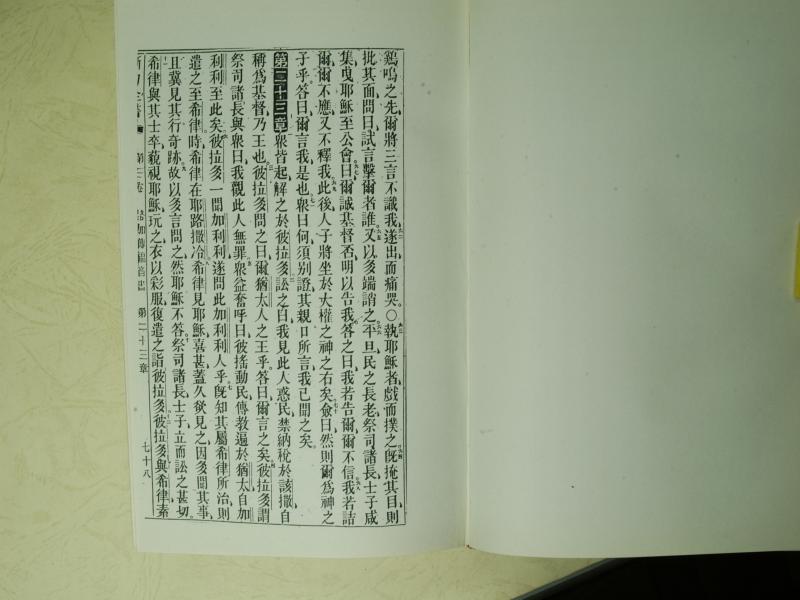 鷄鳴之先爾將三言不識我遂出而痛哭〇執耶穌者戲而撲之旣掩其目則
批其面問曰試言擊爾者誰又以多端誚之平旦民之長老祭司諸長士子咸
集曳耶穌至公會曰爾誠基督否明以告我答之曰我若告爾爾不信我若詰
爾爾不應又不釋我此後人子將坐於大權之神之右矣僉曰然則爾爲神之
子乎答曰爾言我是也衆曰何須別證其親口所言我已聞之矣
第二十三章衆皆起解之於彼拉多訟之曰我見此人惑民禁納稅於該撒自
稱爲基督乃王也彼拉多問之曰爾猶太人之王乎答曰爾言之矣彼拉多謂
祭司諸長與衆曰我觀此人無罪衆益奮呼曰彼搖動民傳教遍於猶太自加
利利至此矣彼拉多一聞加利利遂問此加利利人乎旣知其屬希律所治則
遣之至希律時希律在耶路撒冷希律見耶穌喜甚蓋久欲見之因多聞其事
且冀見其行奇跡故以多言問之然耶穌不答祭司諸長士子立而訟之甚切
希律與其士卒藐視耶穌玩之衣以彩服復遣之詣彼拉多彼拉多與希律素
第二十三章 七十八